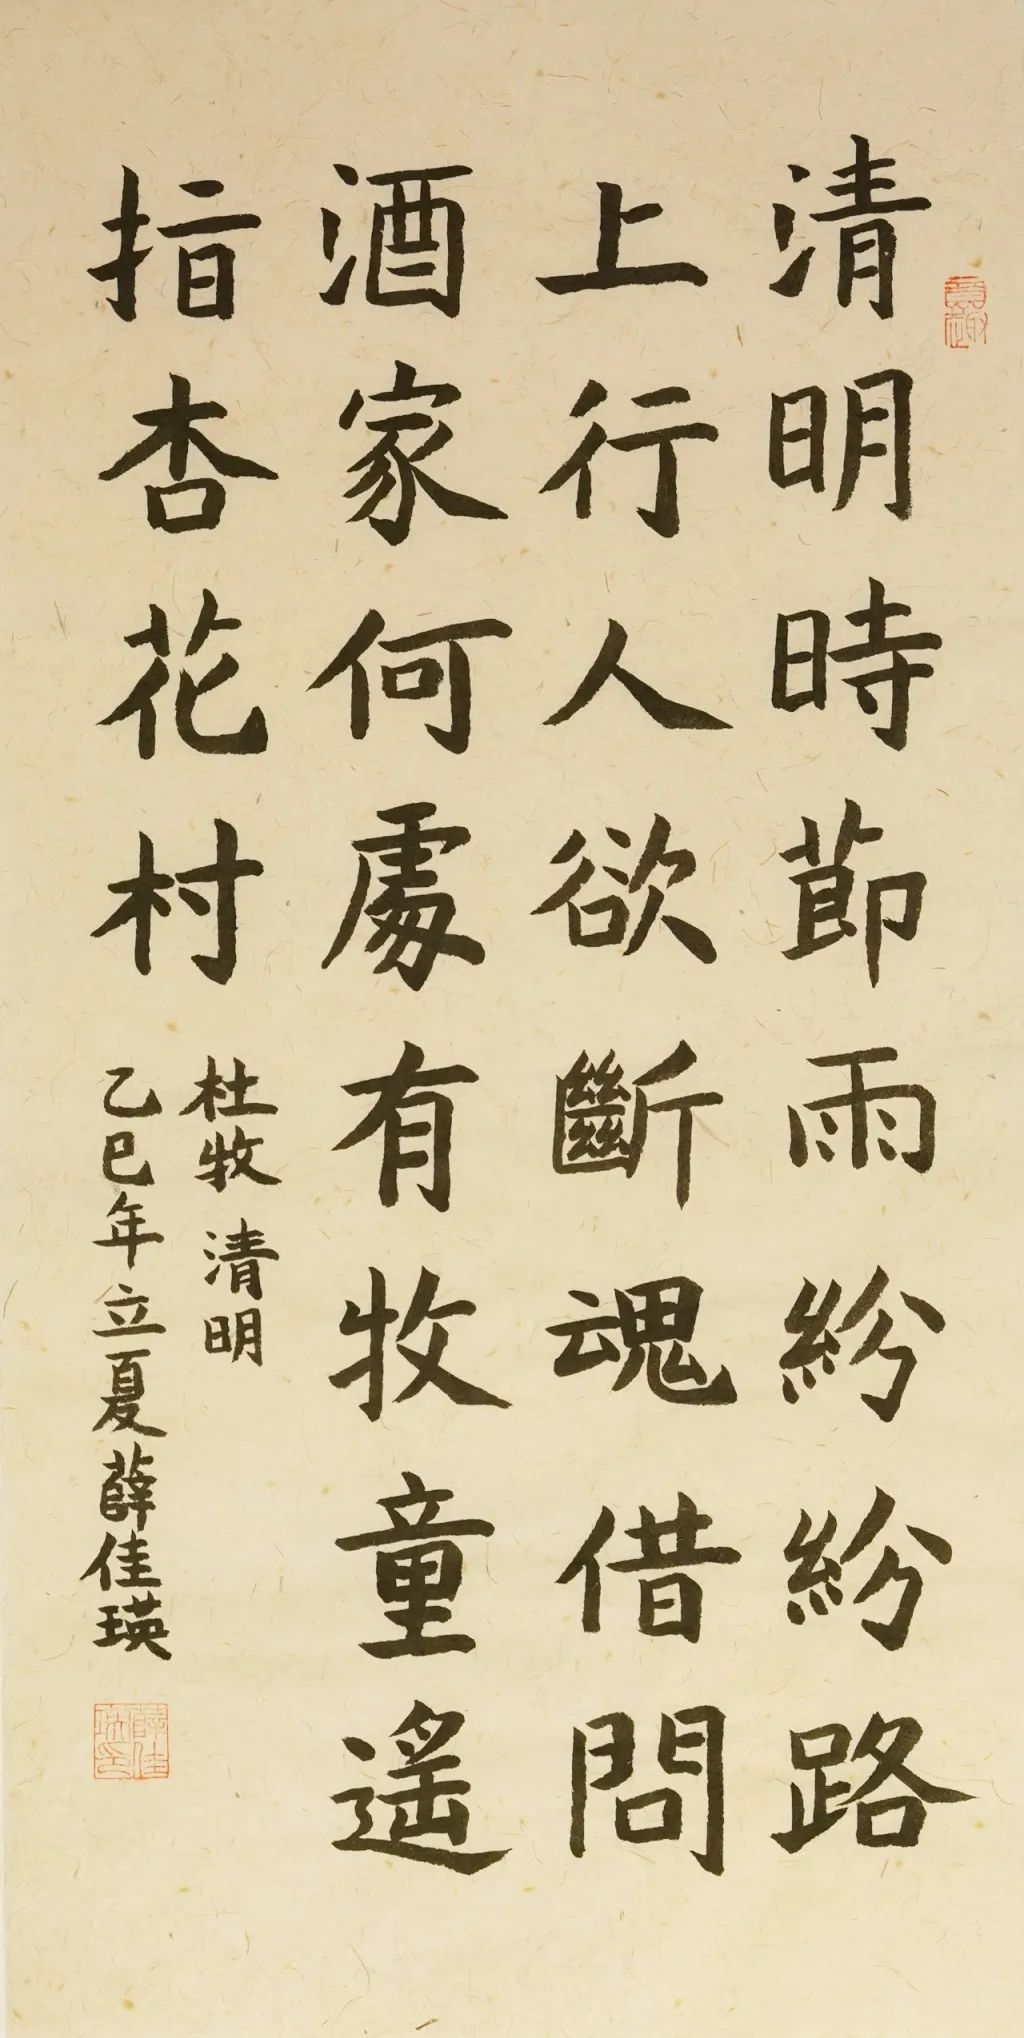 清明時節雨紛紛路
上行人欲斷魂借問
酒家何處有牧童遙
指杏花村
杜牧 清明
乙巳年立夏薛佳瑛
薛佳瑛印